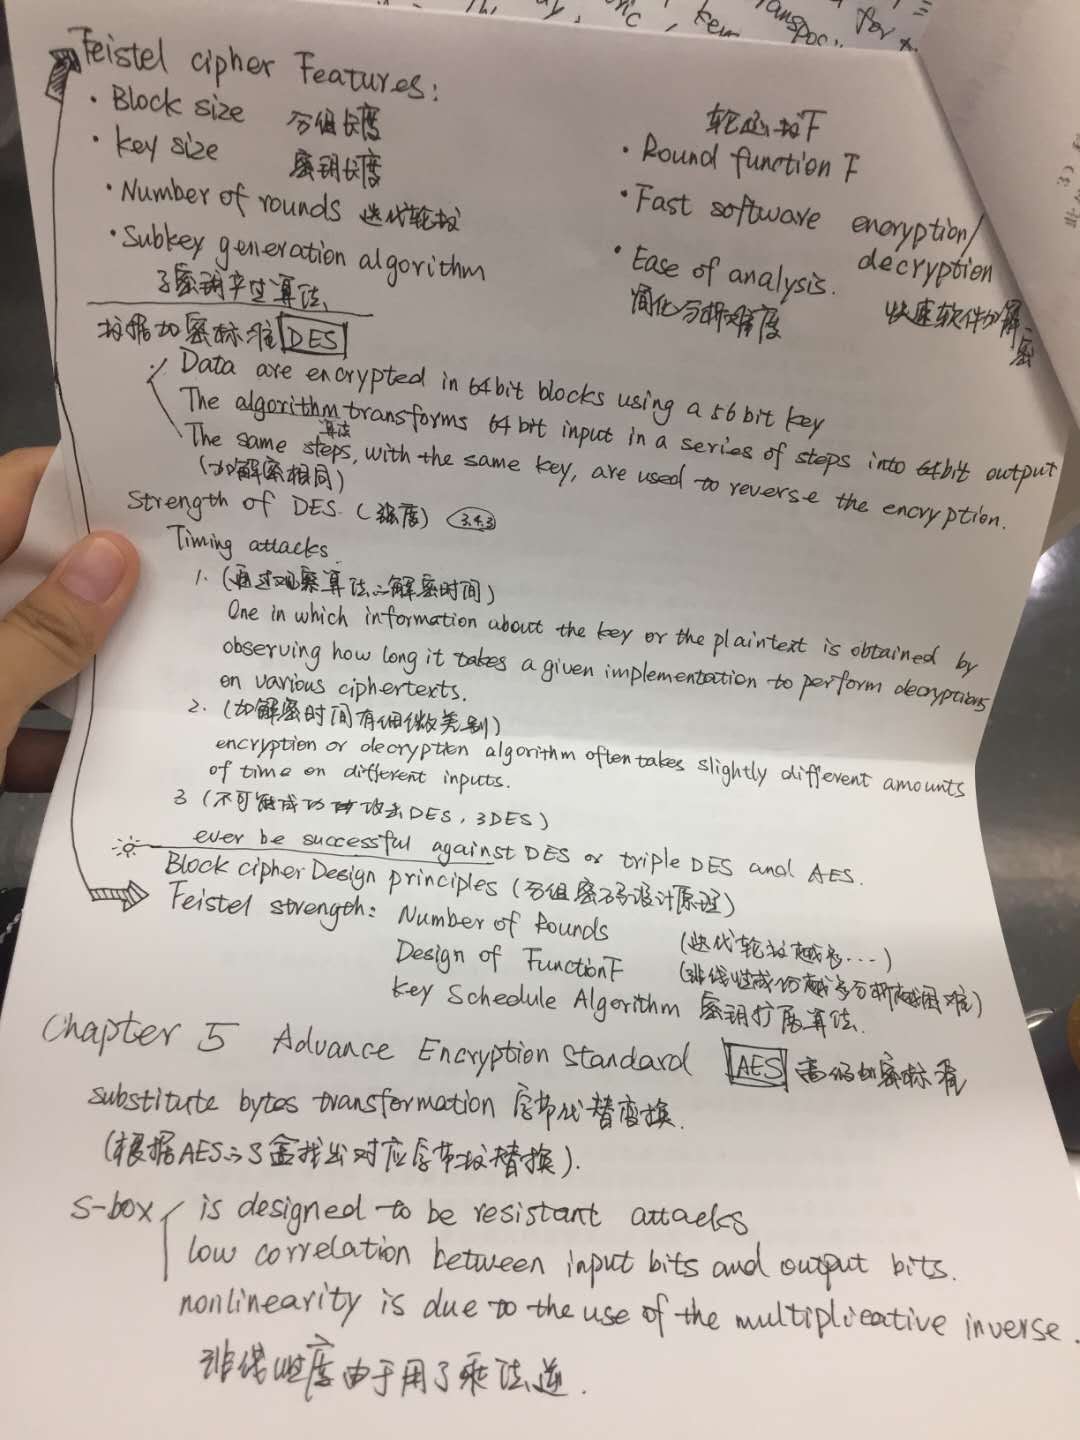 Feistel cipher Features:
· Block size 分组长度
· key size 密钥长度
· Number of rounds 迭代轮数
· Subkey generation algorithm
子密钥产生算法
轮函数F
· Round function F
· Fast software encryption/
decryption
快速软件加解密
· Ease of analysis.
简化分析难度
数据加密标准 DES
Data are encrypted in 64bit blocks using a 56bit key
The algorithm transforms 64bit input in a series of steps into 64bit output
算法
The same steps, with the same key, are used to reverse the encryption.
(加解密相同)
Strength of DES. (强度) 3.4.3
Timing attacks.
1. (通过观察算法的解密时间)
One in which information about the key or the plaintext is obtained by
observing how long it takes a given implementation to perform decryptions
on various ciphertexts.
2. (加解密时间有细微差别)
encryption or decryption algorithm often takes slightly different amounts
of time on different inputs.
3 (不可能成功攻击DES, 3DES)
ever be successful against DES or triple DES and AES.
Block cipher Design principles (分组密码设计原理)
Feistel strength: Number of Rounds (迭代轮数越多...)
Design of Function F (非线性成份越多分析越困难)
key Schedule Algorithm 密钥扩展算法.
Chapter 5 Advance Encryption Standard AES 高级加密标准
substitute bytes transformation 字节代替变换.
(根据AES的S盒找出对应字节数替换).
S-box is designed to be resistant attacks
low correlation between input bits and output bits.
nonlinearity is due to the use of the multiplicative inverse.
非线性度由于用了乘法逆.